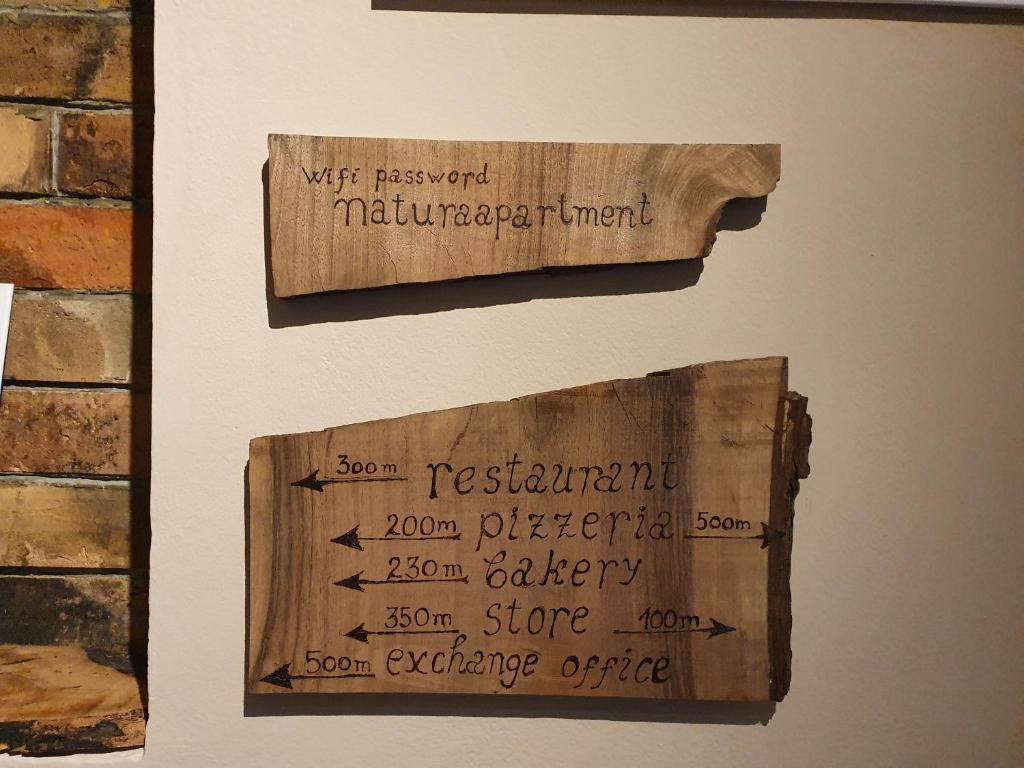 Wifi password
naturaapartment
300m restaurant
200m pizzeria 500m
230m bakery
350m store 100m
500m exchange office